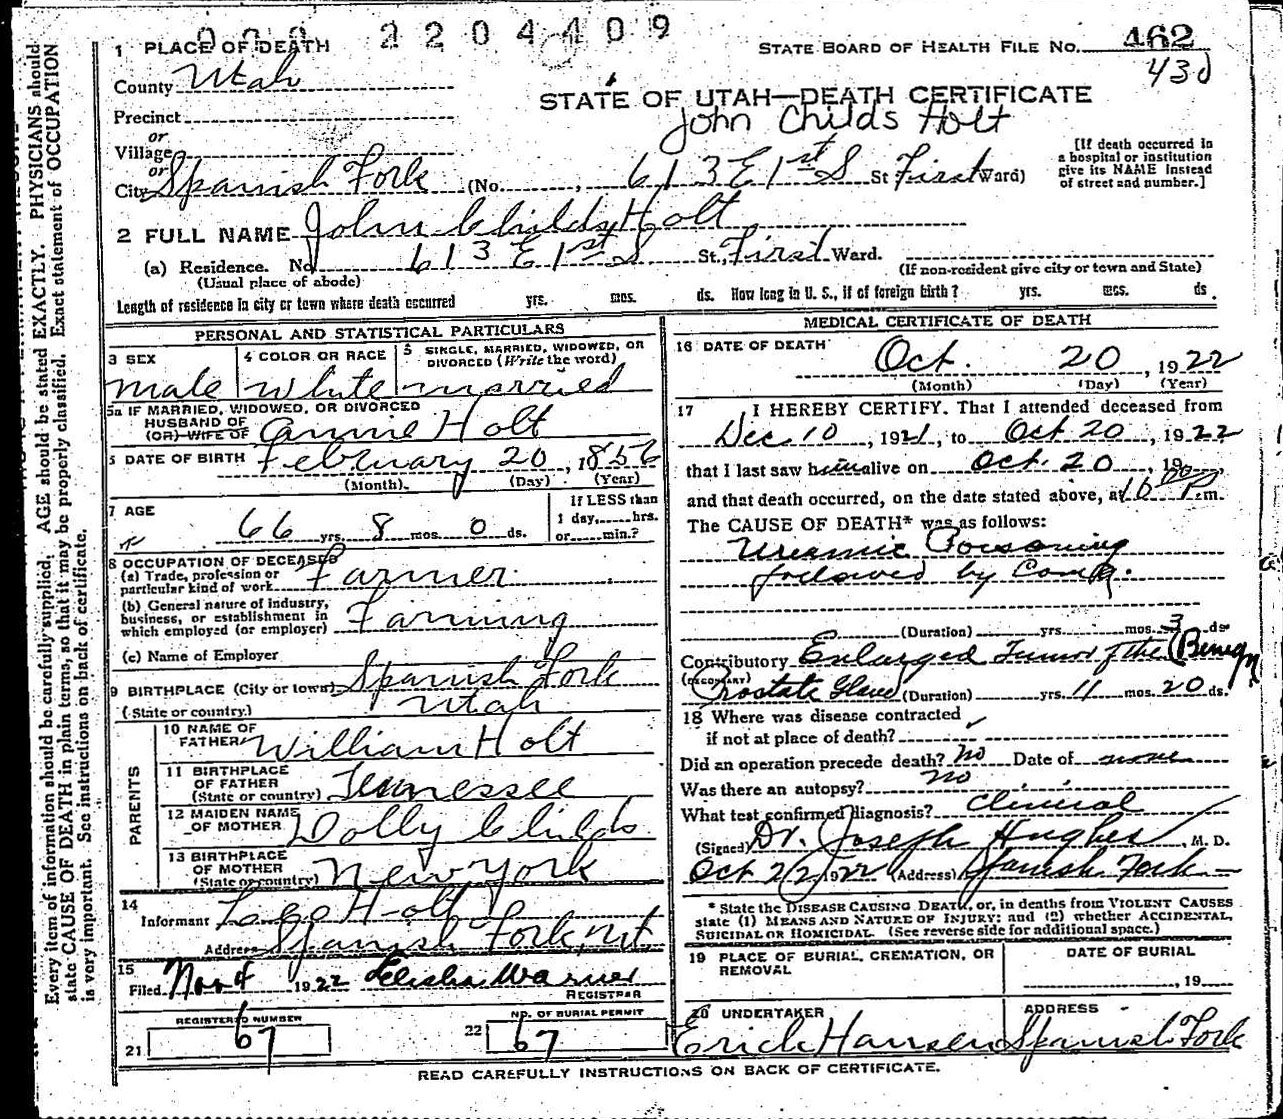 2204409
1 PLACE OF DEATH
STATE BOARD OF HEALTH FILE NO. 462
County Utah
430
STATE OF UTAH—DEATH CERTIFICATE
Precinct
John Childs Holt
or
Village
or
City Spanish Fork (No. 613 E 1st S St First Ward)
[If death occurred in
a hospital or institution
give its NAME instead
of street and number.]
2 FULL NAME John Childs Holt
(a) Residence. No. 613 E 1st S St., First Ward.
(Usual place of abode)
(If non-resident give city or town and State)
Length of residence in city or town where death occurred yrs. mos. ds. How long in U. S., if of foreign birth? yrs. mos. ds.
PERSONAL AND STATISTICAL PARTICULARS
3 SEX
male
4 COLOR OR RACE
White
5 SINGLE, MARRIED, WIDOWED, OR
DIVORCED (Write the word)
married
5a IF MARRIED, WIDOWED, OR DIVORCED
HUSBAND OF
(OR) WIFE OF Annie Holt
6 DATE OF BIRTH February 20, 1856
(Month) (Day) (Year)
7 AGE
66 yrs. 8 mos. 0 ds.
If LESS than
1 day,.....hrs.
or.....min.?
8 OCCUPATION OF DECEASED
(a) Trade, profession or
particular kind of work Farmer
(b) General nature of industry,
business, or establishment in
which employed (or employer) Farming
(c) Name of Employer
9 BIRTHPLACE (City or town) Spanish Fork
(State or country.) Utah
PARENTS
10 NAME OF
FATHER William Holt
11 BIRTHPLACE
OF FATHER
(State or country) Tennessee
12 MAIDEN NAME
OF MOTHER Dolly Childs
13 BIRTHPLACE
OF MOTHER
(State or country) New York
14
Informant Holt
Address Spanish Fork, Ut.
15
Filed Nov 4 1922 Elisha Warner
REGISTRAR
REGISTERED NUMBER
21 67
NO. OF BURIAL PERMIT
22 67
MEDICAL CERTIFICATE OF DEATH
16 DATE OF DEATH
Oct. 20, 1922
(Month) (Day) (Year)
17 I HEREBY CERTIFY. That I attended deceased from
Dec 10, 1921, to Oct 20, 1922
that I last saw him alive on Oct. 20, 19
and that death occurred, on the date stated above, at 10 00 P. m.
The CAUSE OF DEATH* was as follows:
Uraemic Poisoning
followed by Coma.
(Duration) yrs. mos. 3 ds.
Contributory Enlarged Tumor of the (Benign
(SECONDARY)
Prostate Gland (Duration) yrs. 11 mos. 20 ds.
18 Where was disease contracted
if not at place of death?
Did an operation precede death? no Date of none
Was there an autopsy? no
What test confirmed diagnosis? Clinical
(Signed) Dr. Joseph Hughes, M. D.
Oct 22, 1922 (Address) Spanish Fork
* State the DISEASE CAUSING DEATH, or, in deaths from VIOLENT CAUSES
state (1) MEANS AND NATURE OF INJURY; and (2) whether ACCIDENTAL,
SUICIDAL OR HOMICIDAL. (See reverse side for additional space.)
19 PLACE OF BURIAL, CREMATION, OR
REMOVAL
DATE OF BURIAL
, 19
20 UNDERTAKER
Erick Hansen
ADDRESS
Spanish Fork
READ CAREFULLY INSTRUCTIONS ON BACK OF CERTIFICATE.
Every item of information should be carefully supplied. AGE should be stated EXACTLY. PHYSICIANS should
state CAUSE OF DEATH in plain terms, so that it may be properly classified. Exact statement of OCCUPATION
is very important. See instructions on back of certificate.